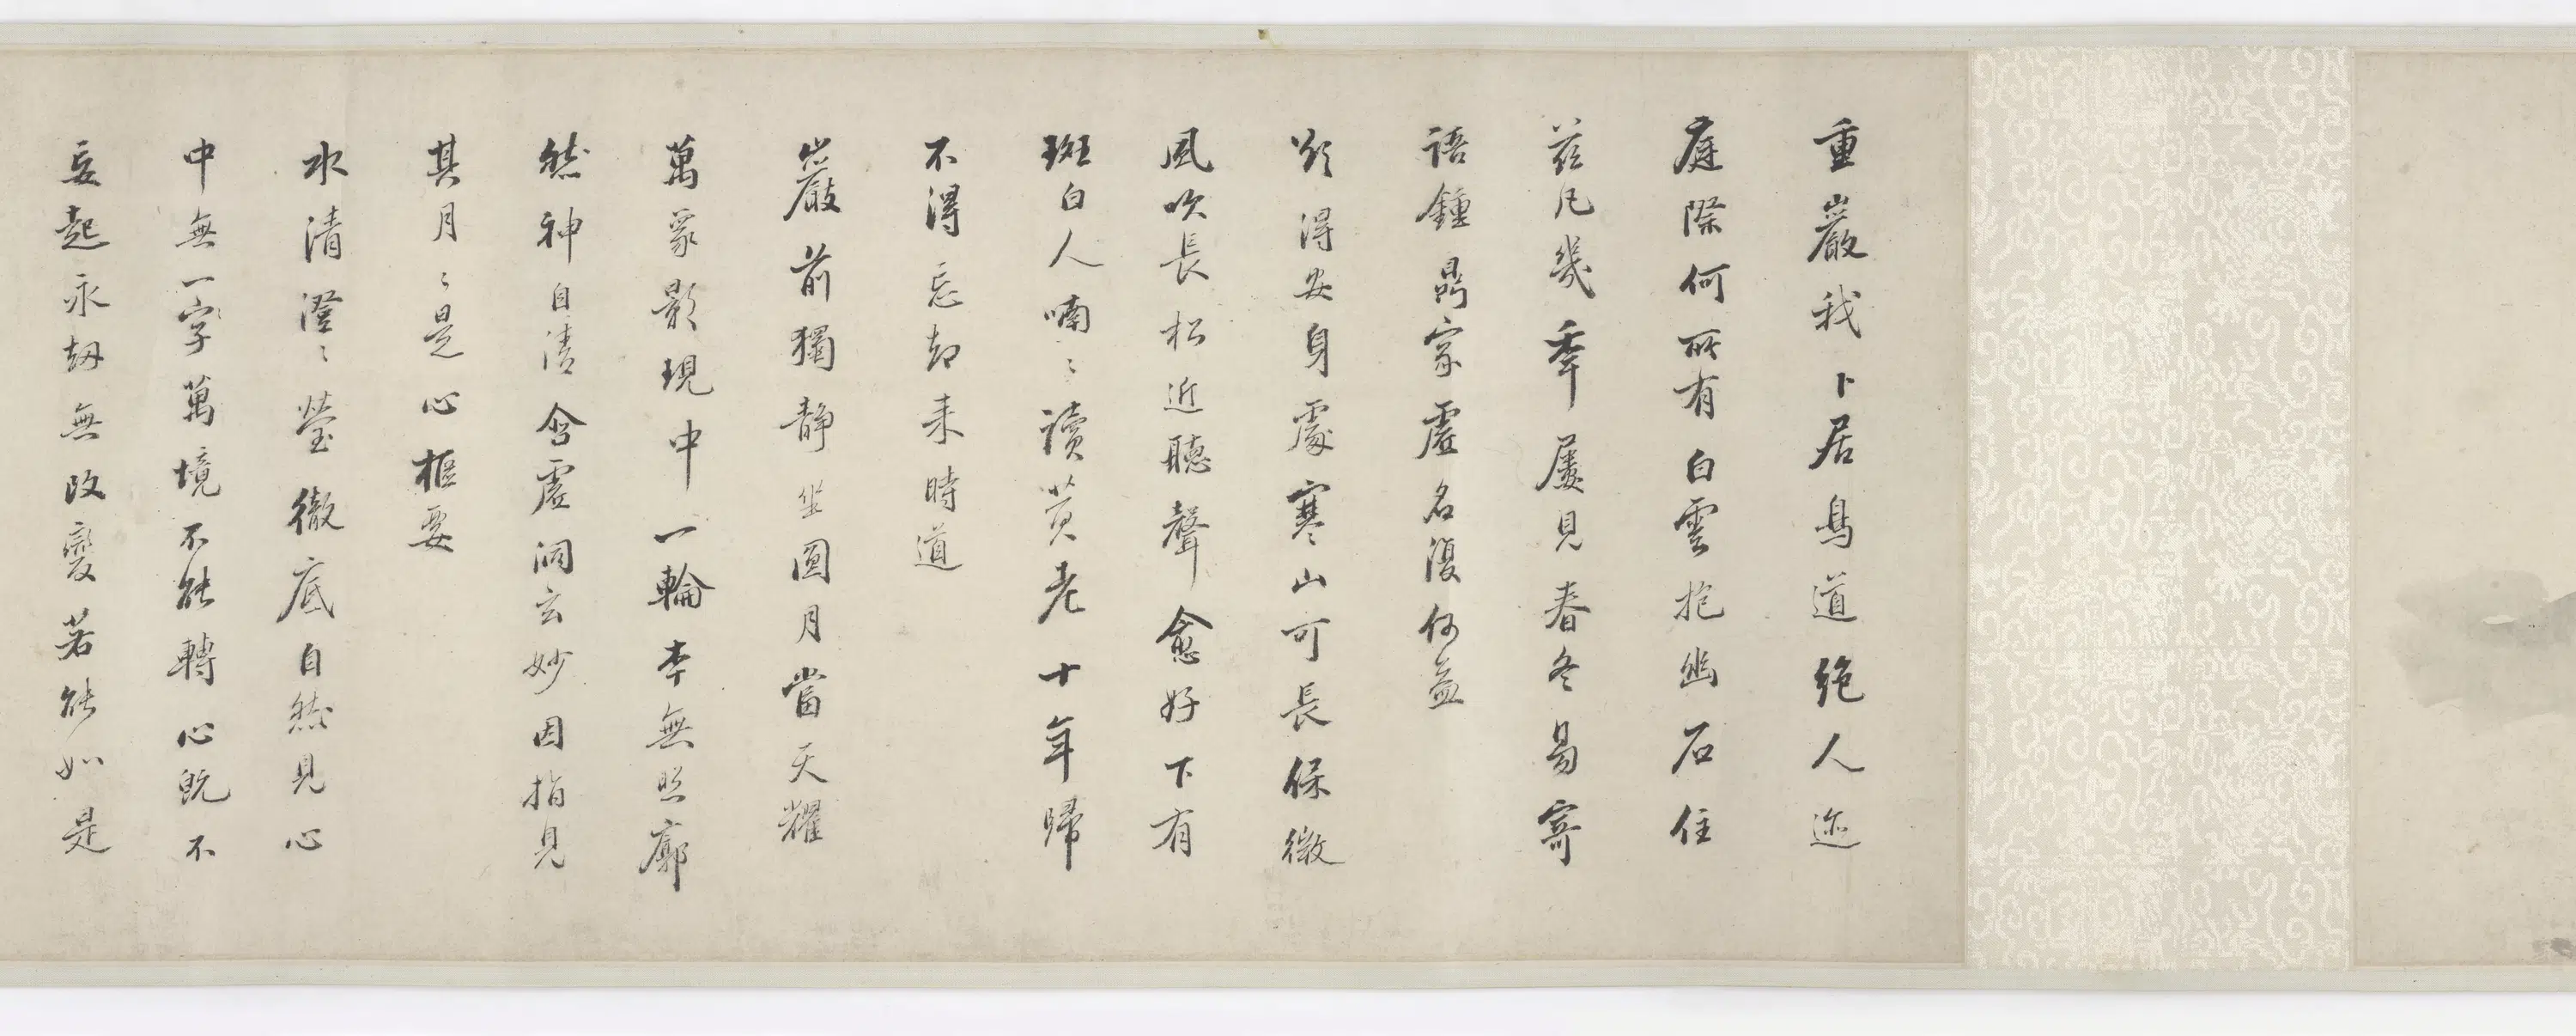 重巖我卜居鳥道絶人迹
庭際何所有白雲抱幽石住
茲凡幾秊屢見春冬易寄
語鍾鼎家虛名復何益
欲得安身處寒山可長保微
風吹長松近聽聲愈好下有
斑白人喃〻讀黃老十年歸
不得忘却来時道
巖前獨靜坐圓月當天耀
萬象影現中一輪本無照廓
然神自清含虛洞玄妙因指見
其月〻是心樞要
水清澄〻瑩徹底自然見心
中無一字萬境不能轉心既不
妄起永劫無改變若能如是